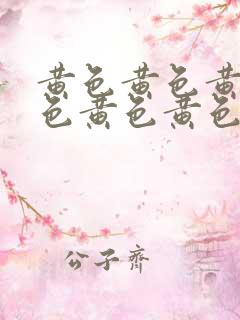 黄色黄色黄
色黄色黄色
公子齐